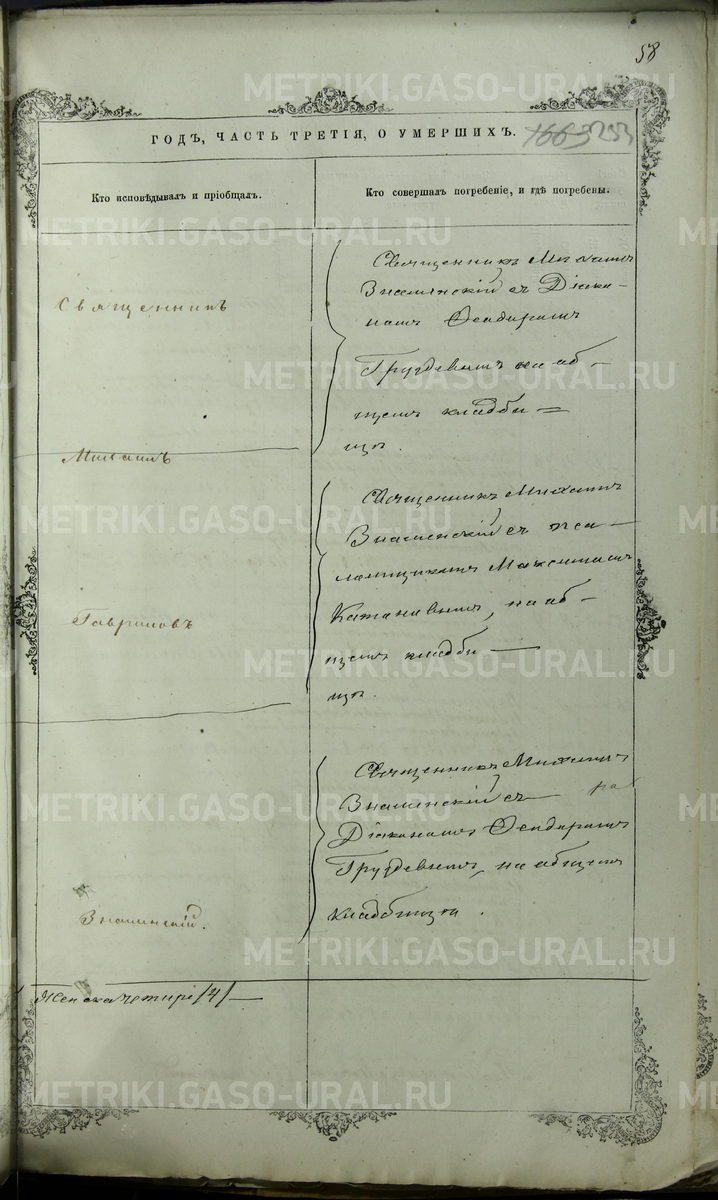 58
ГОДЪ, ЧАСТЬ ТРЕТІЯ, О УМЕРШИХЪ.
Кто исповѣдывалъ и пріобщалъ.
Кто совершалъ погребеніе, и гдѣ погребены.
Священникъ
Михаилъ
Гавриловъ
Знаменскій.
Священникъ Михаилъ
Знаменскій съ Діако-
номъ Ѳеодоромъ
Груздевымъ на об-
щемъ кладби-
щѣ.
Священникъ Михаилъ
Знаменскій съ пса-
ломщикомъ Максимомъ
на об-
щемъ кладби-
щѣ.
Священникъ Михаилъ
Знаменскій съ
Діакономъ Ѳеодоромъ
Груздевымъ, на общемъ
кладбищѣ.
Женска четыре /4/
METRIKI.GASO-URAL.RU